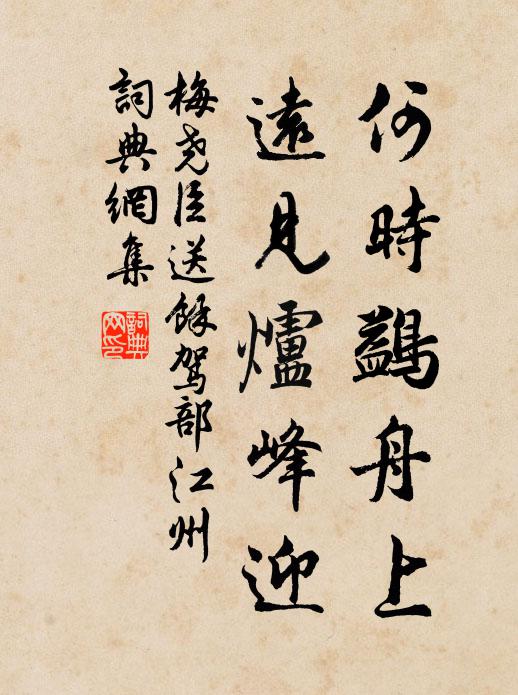 何時鷁舟上
遠見爐峰迎
梅堯臣送餘駕部江州
詞典網集
詞典網印